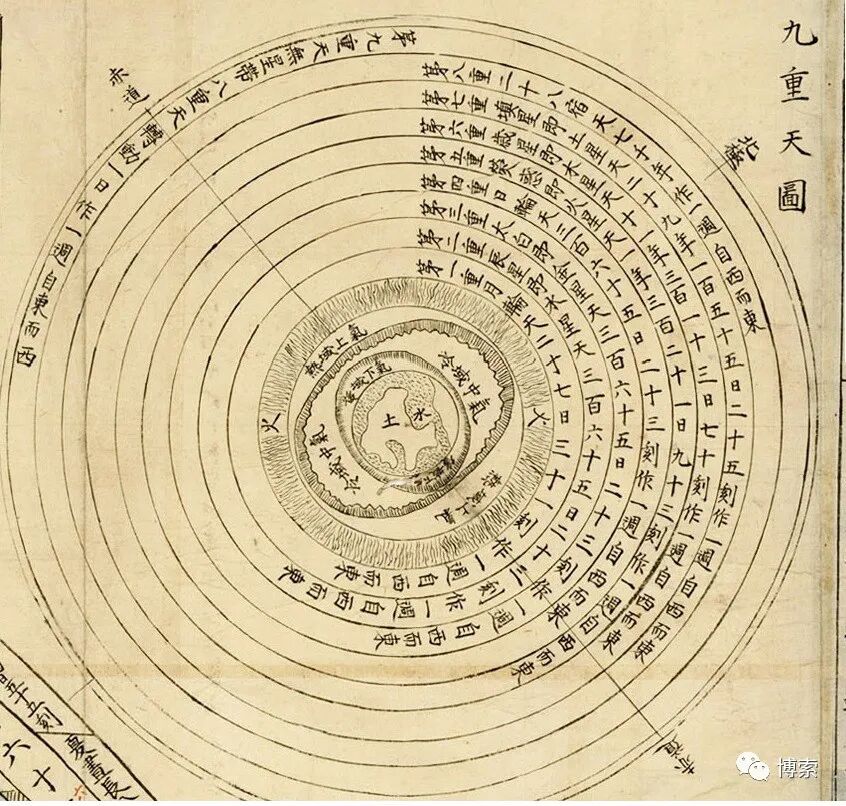 九重天圖
北極
赤道
第九重天無星帶八重天轉動一日作一週自東而西
第八重二十八宿天七千年作一週自西而東
第七重填星即土星天二十九年一百五十五日二十五刻作一週自西而東
第六重歲星即木星天十一年三百一十三日七十刻作一週自西而東
第五重熒惑即火星天一年三百二十一日九十三刻作一週自西而東
第四重日輪天三百六十五日二十三刻作一週自西而東
第三重太白即金星天三百六十五日二十三刻作一週自西而東
第二重辰星即水星天三百六十五日二十三刻作一週自西而東
第一重月輪天二十七日三十一刻作一週自西而東
熱域上氣
冷域中氣
煖域下氣
火
土
水
火
冷域中氣
熱域上氣
赤道
五刻
夏晝長
六十
博索